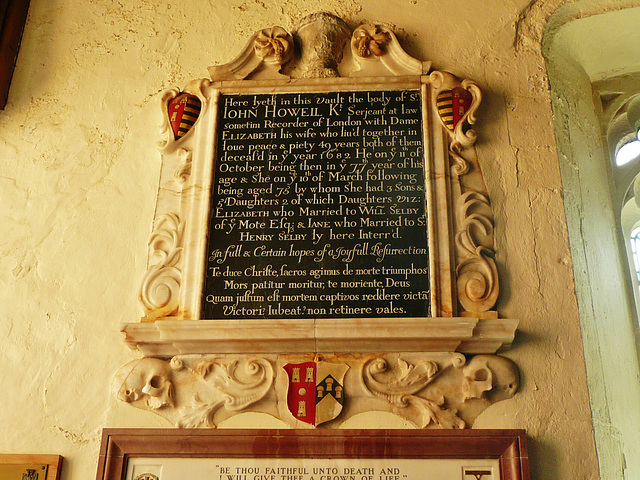 Here lyeth in this Vault the body of Sr.
IOHN HOWEIL Kt. Serjeant at law
sometim Recorder of London with Dame
ELIZABETH his wife who liu'd together in
loue peace & piety 49 years both of them
deceas'd in ye year 1682 He on ye 11th of
October being then in ye 77th year of his
age & She on ye 10th of March following
being aged 75 by whom She had 3 Sons &
Daughters 2 of which Daughters VIZ:
ELIZABETH who Married to WILL SELBY
of ye Mote Esq; & IANE who Married to Sr.
HENRY SELBY ly here Interr'd.
In full & Certain hopes of a Joyfull Resurrection
Te duce Christe, sacros agimus de morte triumphos
Mors patitur moritur, te moriente, Deus
Quam justum est mortem captivos reddere victā
Victori? Iubeat? non retinere vales.
"BE THOU FAITHFUL UNTO DEATH AND
I WILL GIVE THEE A CROWN OF LIFE."